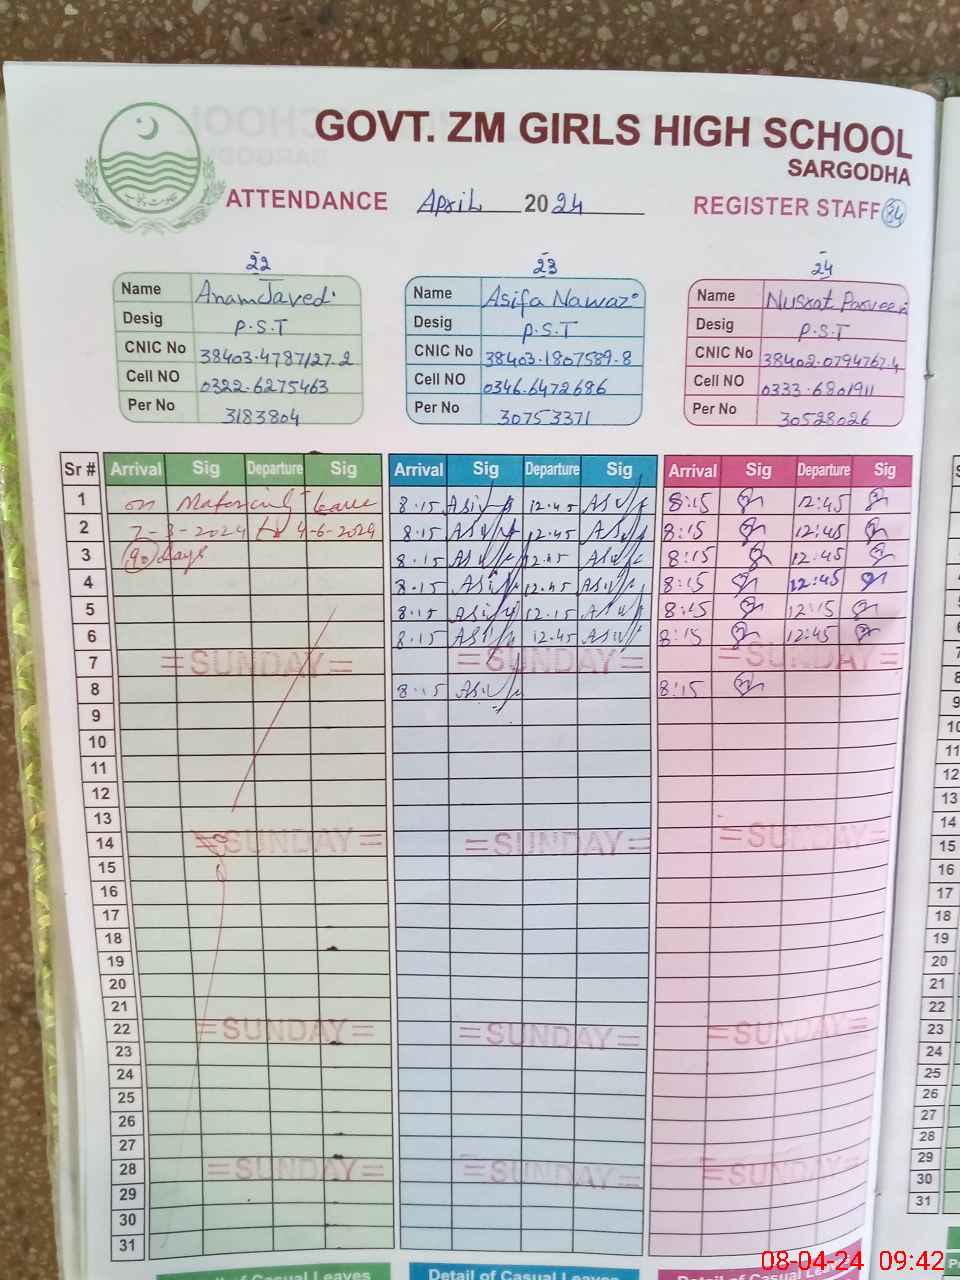 GOVT. ZM GIRLS HIGH SCHOOL
SARGODHA
ATTENDANCE April 2024 REGISTER STAFF 34
22 23 24
Name Anam Javed Name Asifa Nawaz Name Nusrat Parveen
Desig P.S.T Desig P.S.T Desig P.S.T
CNIC No 38403-4787127-2 CNIC No 38403-1807589-8 CNIC No 38402-0794767-4
Cell NO 0322-6275463 Cell NO 0346-6472686 Cell NO 0333-6801911
Per No 3183804 Per No 30753371 Per No 30528026
Sr # Arrival Sig Departure Sig Arrival Sig Departure Sig Arrival Sig Departure Sig
1 on leave 8.15 12.45 8:15 12:45
2 7-3-2024 to 4-6-2024 8.15 12.45 8:15 12:45
3 90 days 8.15 12.45 8:15 12:45
4 8.15 12.45 8:15 12:45
5 8.15 12.15 8:15 12:15
6 8.15 12.45 8:15 12:45
7 =SUNDAY= =SUNDAY= =SUNDAY=
8 8.15 8:15
9
10
11
12
13
14 =SUNDAY= =SUNDAY= =SUNDAY=
15
16
17
18
19
20
21
22 =SUNDAY= =SUNDAY= =SUNDAY=
23
24
25
26
27
28 =SUNDAY= =SUNDAY= =SUNDAY=
29
30
31
of Casual Leaves Detail of Casual Leaves Detail of Casual Leaves
08-04-24 09:42